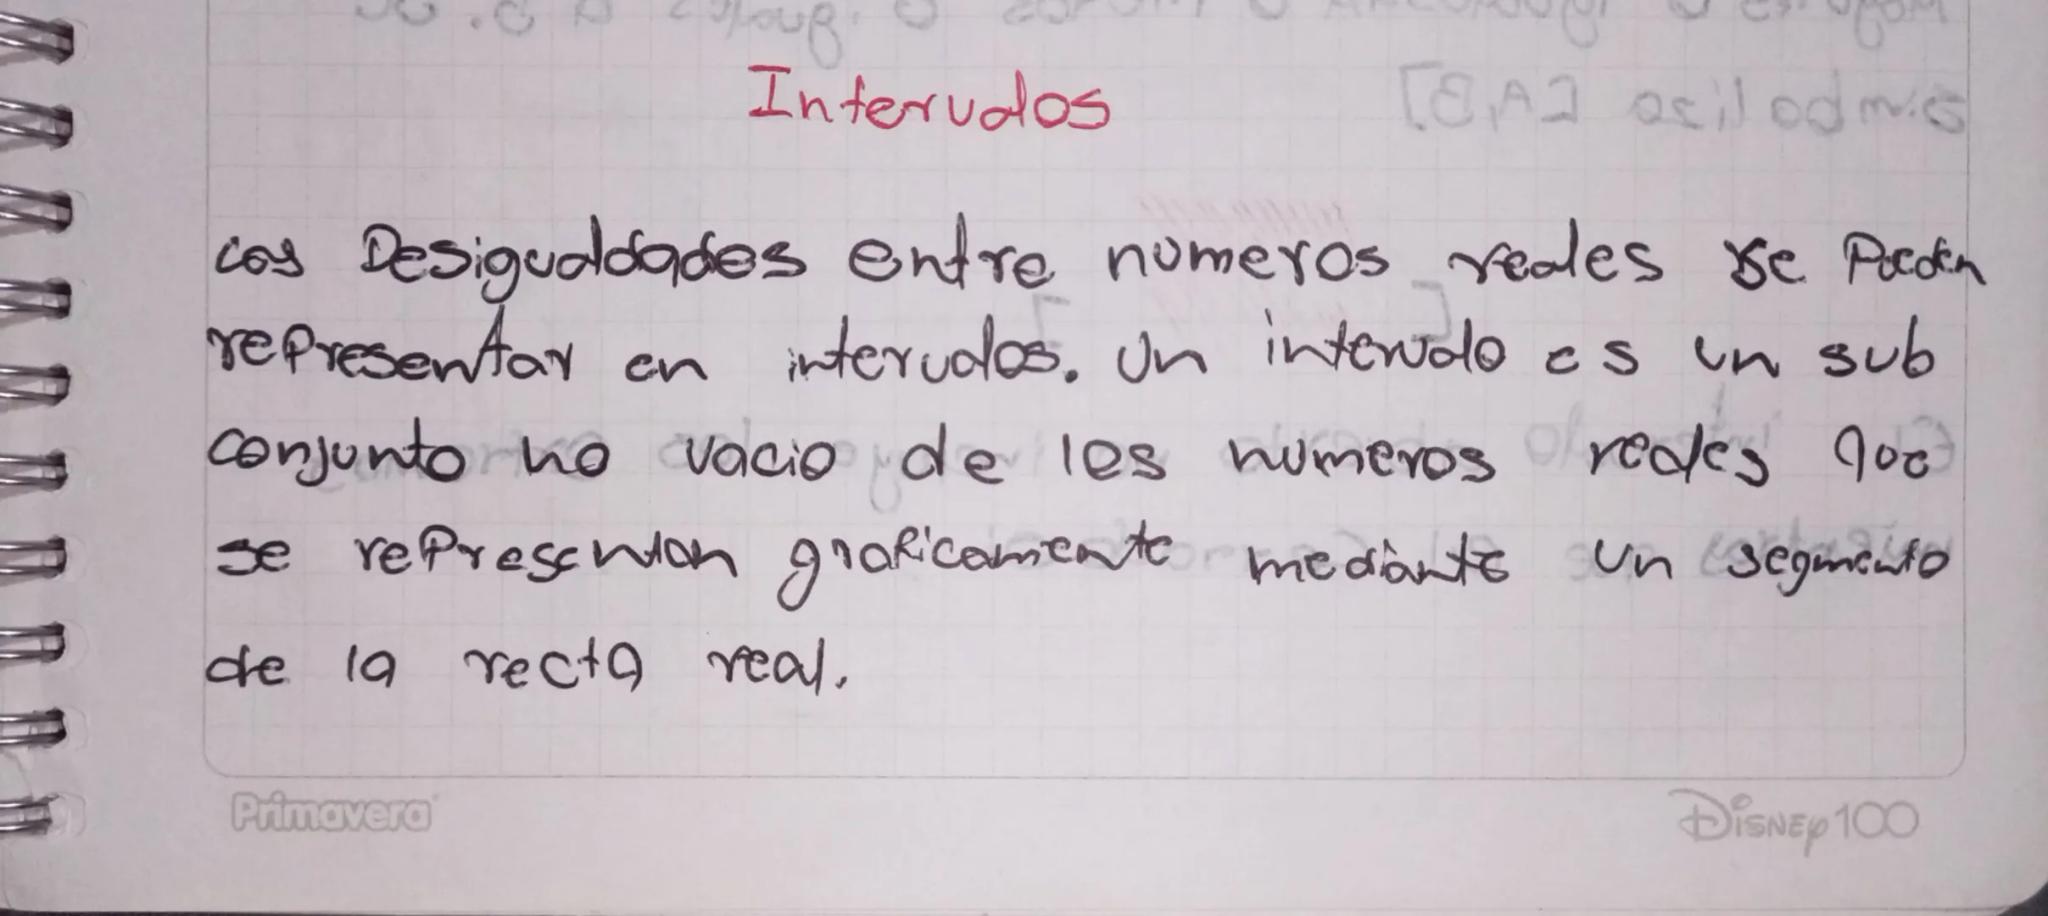 Intervalos
Las Desigualdades entre numeros reales se Pueden
representar en intervalos. Un intervalo es un sub
conjunto no vacio de los numeros reales que
se representan graficamente mediante un segmento
de la recta real.
Primavera
Disney100